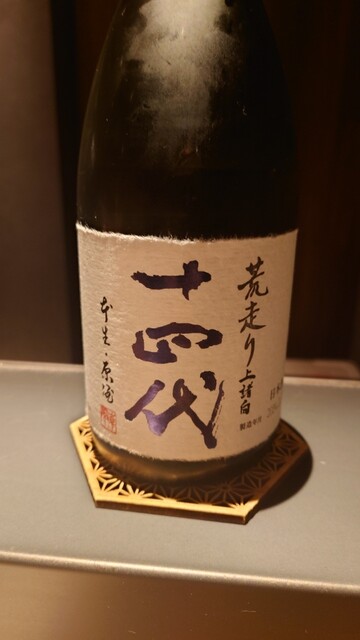 荒走り上諸白
十四代
本生・原酒
製造年月
日本